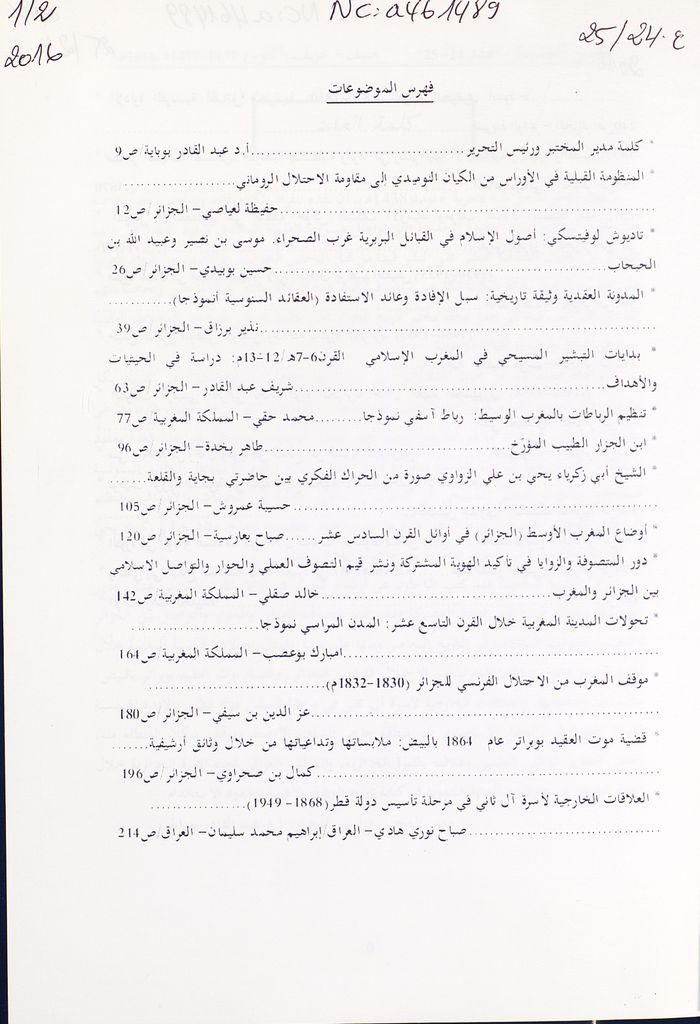 1/2
NC: a461489
25/24.ع
2016
فهرس الموضوعات
* كلمة مدير المختبر ورئيس التحرير..............................أ.د عبد القادر بوباية/ص9
* المنظومة القبلية في الأوراس من الكيان النوميدي إلى مقاومة الاحتلال الروماني....................
....................حفيظة لعياصي- الجزائر/ص12
* تاديوش لوفيتسكي: أصول الإسلام في القبائل البربرية غرب الصحراء. موسى بن نصير وعبيد الله بن
الحبحاب....................حسين بوبيدي- الجزائر/ص26
* المدونة العقدية وثيقة تاريخية: سبل الإفادة وعائد الاستفادة (العقائد السنوسية أنموذجا)............
....................نذير برزاق- الجزائر/ص39
* بدايات التبشير المسيحي في المغرب الإسلامي القرن6-7ه/12-13م: دراسة في الحيثيات
والأهداف....................شريف عبد القادر- الجزائر/ص63
* تنظيم الرباطات بالمغرب الوسيط: رباط آسفي نموذجا.........محمد حقي- المملكة المغربية/ص77
* ابن الجزار الطبيب المؤرّخ....................طاهر بخدة- الجزائر/ص96
* الشيخ أبي زكرياء يحي بن علي الزواوي صورة من الحراك الفكري بين حاضرتي بجاية والقلعة.......
....................حسيبة عمروش- الجزائر/ص105
* أوضاع المغرب الأوسط (الجزائر) في أوائل القرن السادس عشر......صباح بعارسية- الجزائر/ص120
* دور المتصوفة والزوايا في تأكيد الهوية المشتركة ونشر قيم التصوف العملي والحوار والتواصل الاسلامي
بين الجزائر والمغرب....................خالد صقلي- المملكة المغربية/ص142
* تحولات المدينة المغربية خلال القرن التاسع عشر: المدن المراسي نموذجا....................
....................امبارك بوعصب- المملكة المغربية/ص164
* موقف المغرب من الاحتلال الفرنسي للجزائر (1830-1832م)....................
....................عز الدين بن سيفي- الجزائر/ص180
* قضية موت العقيد بوبراتر عام 1864 بالبيض: ملابساتها وتداعياتها من خلال وثائق أرشيفية.......
....................كمال بن صحراوي- الجزائر/ص196
* العلاقات الخارجية لأسرة آل ثاني في مرحلة تأسيس دولة قطر(1868- 1949)............
....................صباح نوري هادي- العراق/إبراهيم محمد سليمان- العراق/ص214